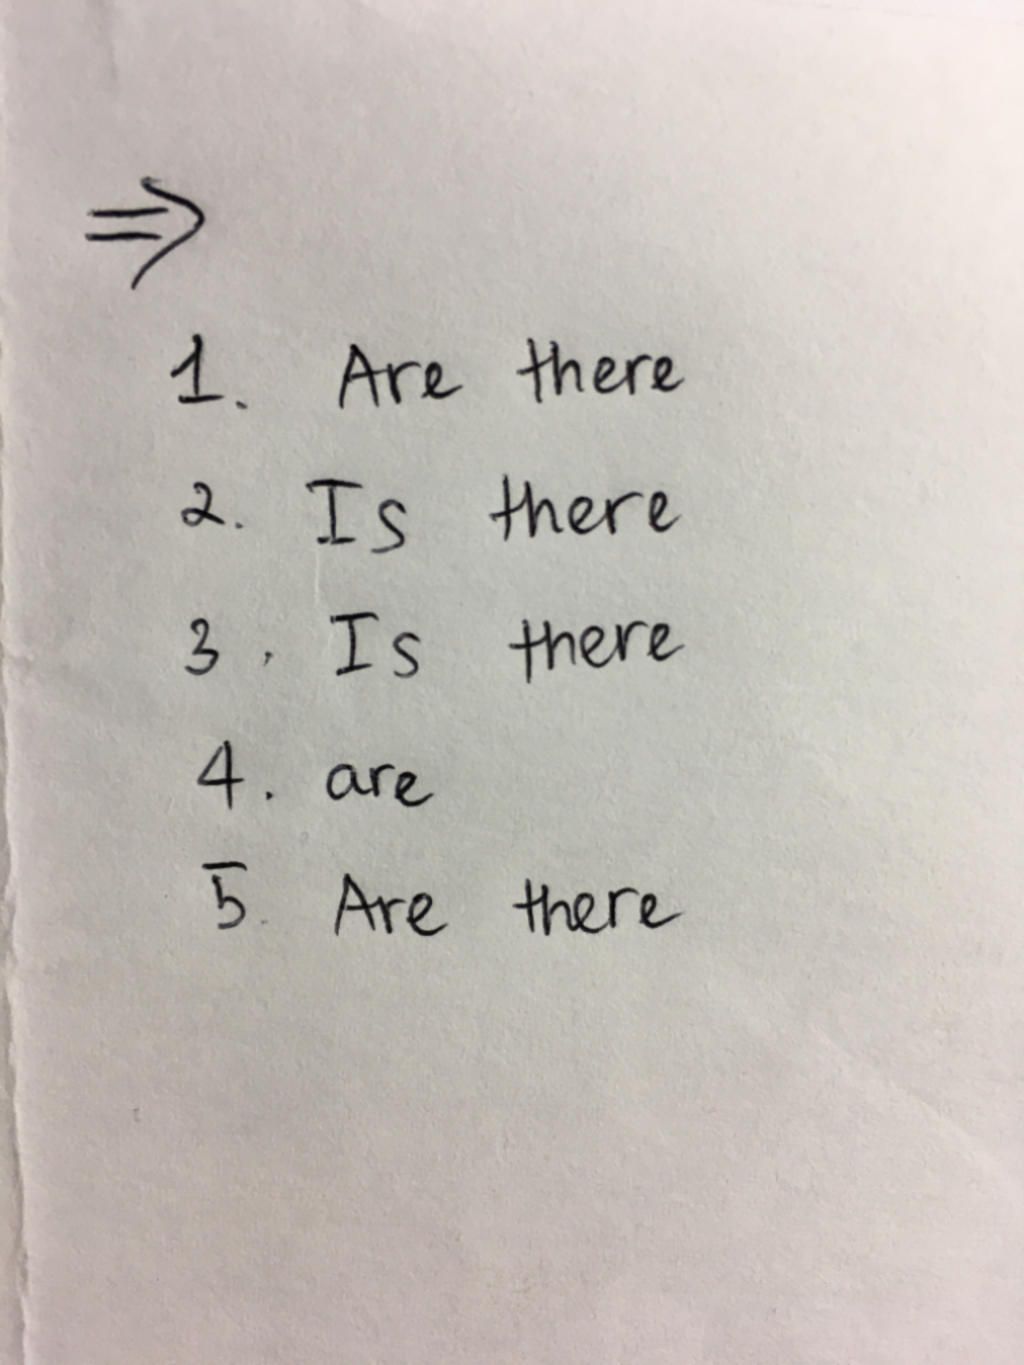 ⇒
1. Are there
2. Is there
3. Is there
4. are
5. Are there